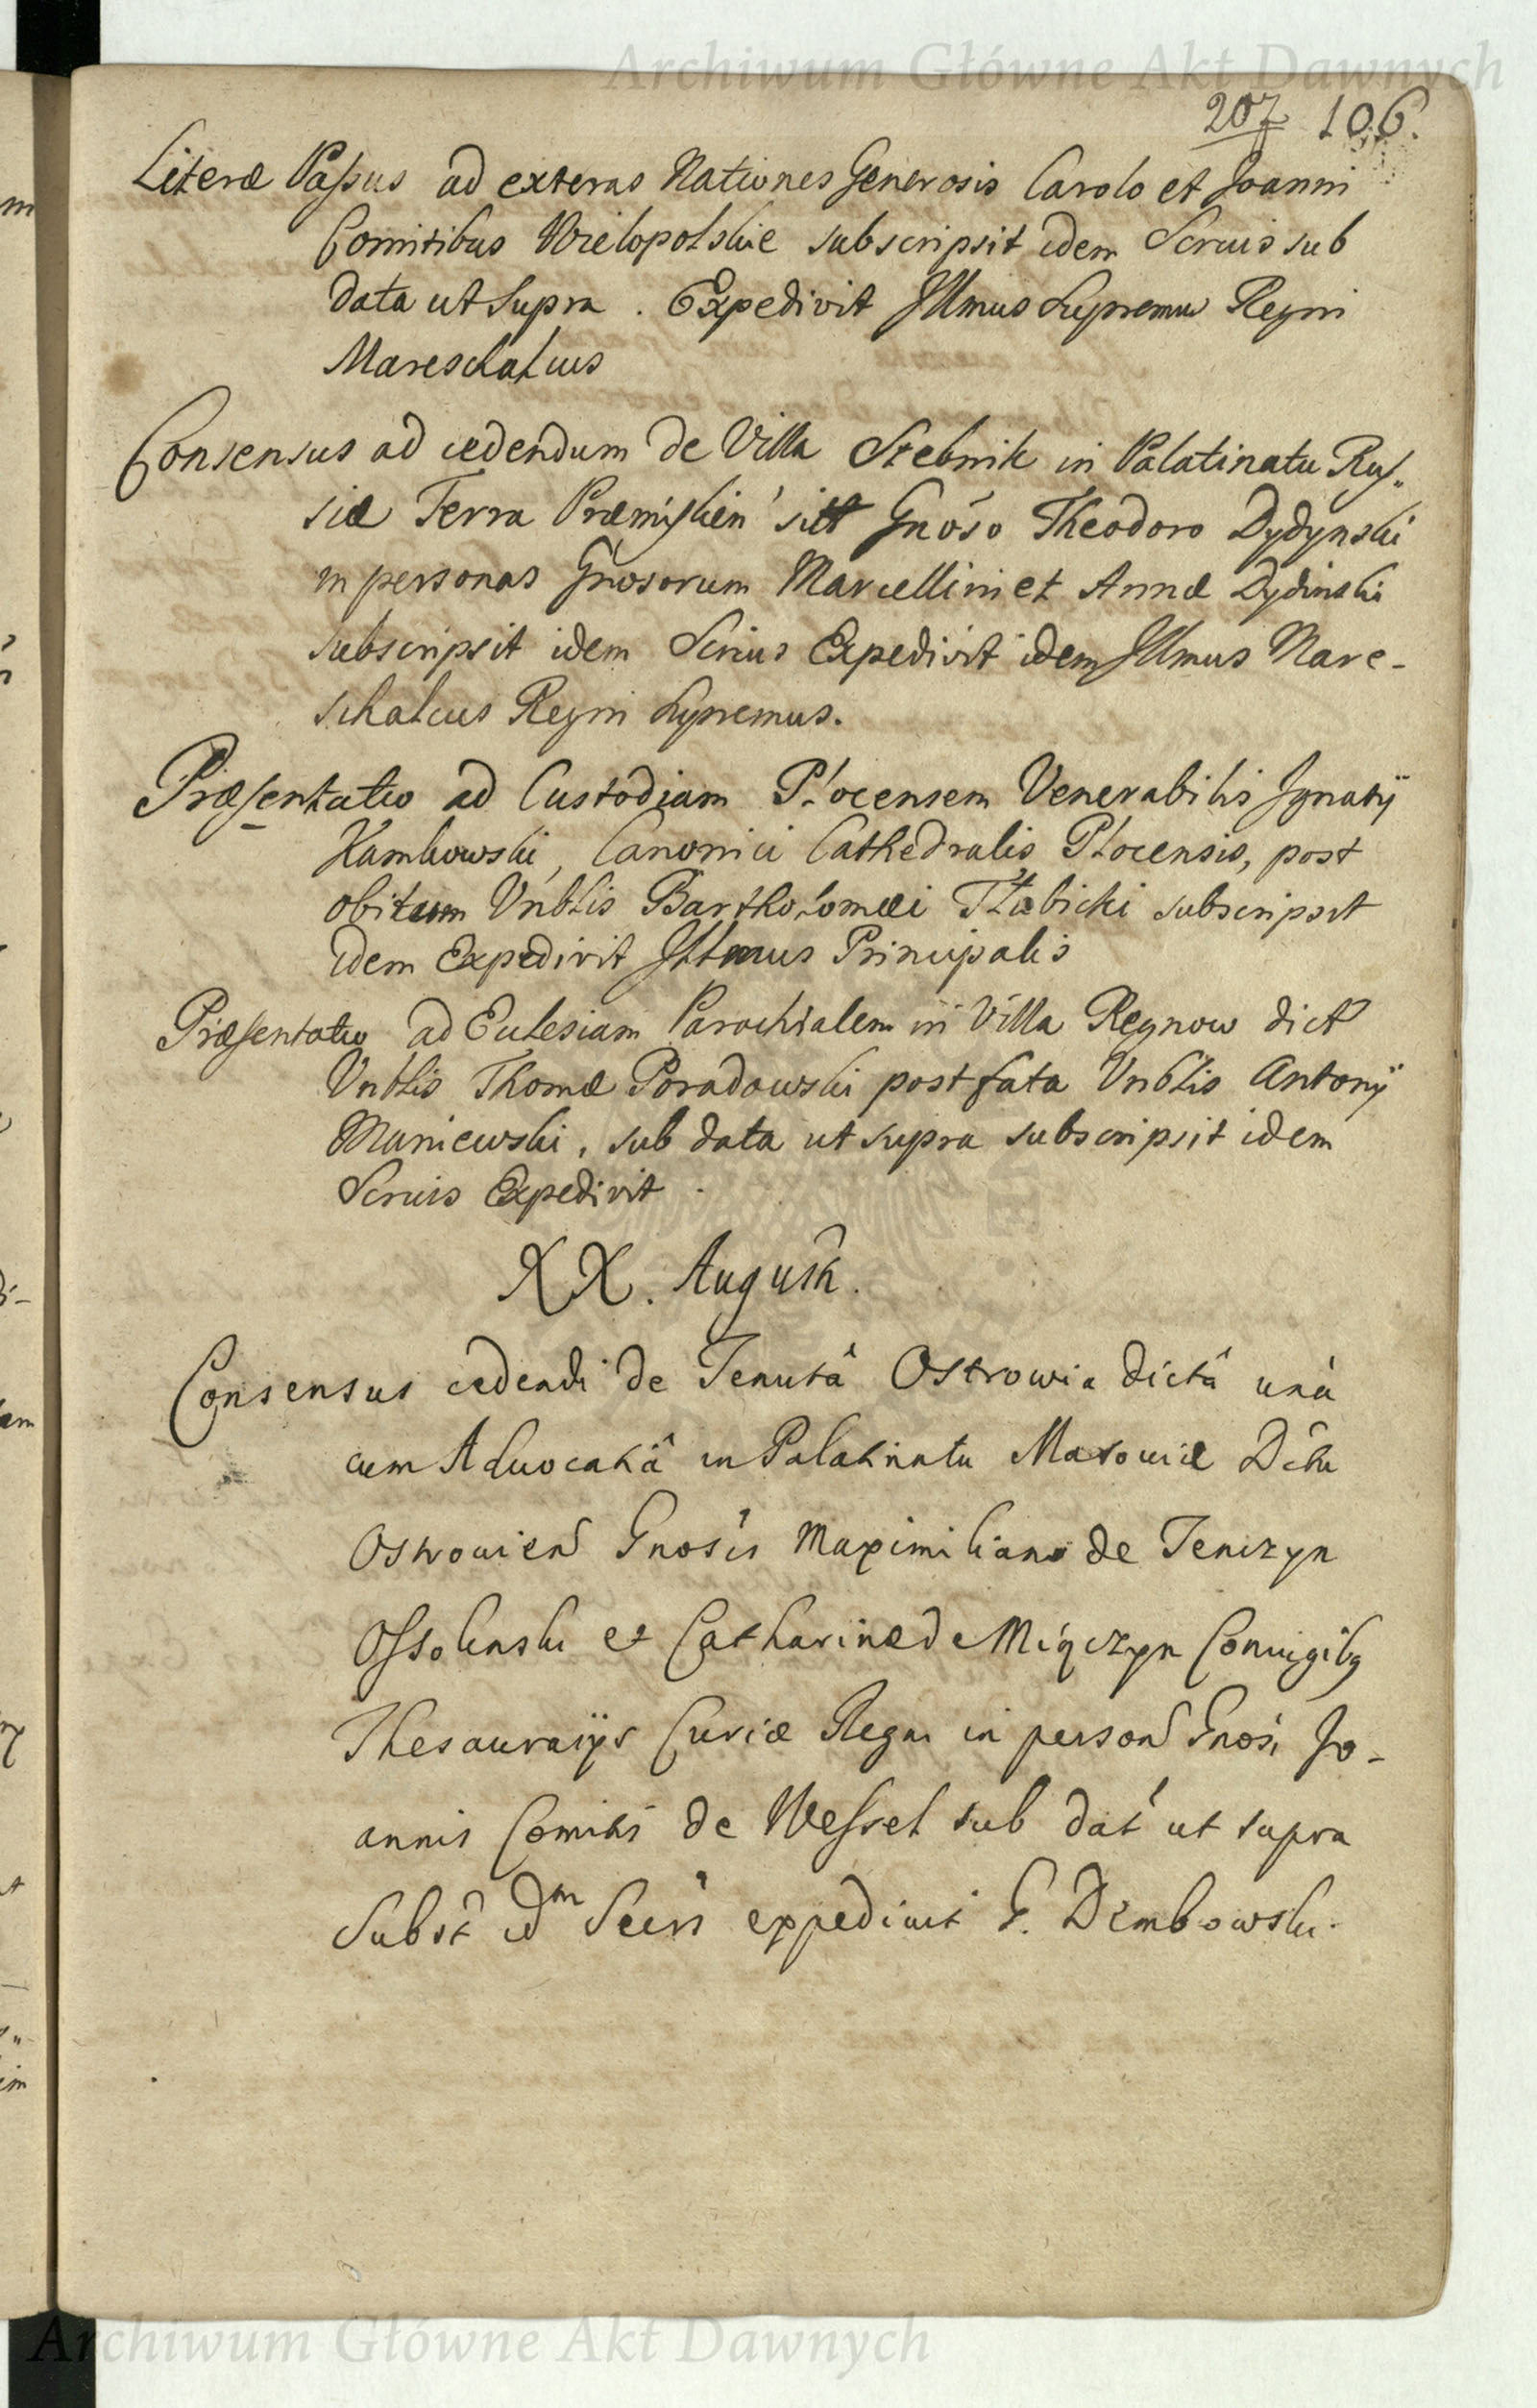 Archiwum Główne Akt Dawnych
207 106.
Literæ Passus ad exteras Nationes Generosis Carolo et Joanni
Comitibus Wielopolskie subscripsit idem Scruis sub
data ut supra . Expedivit Jllmus Supremus Regni
Mareschalcus
Consensus ad cedendum de Villa Stebnik in Palatinatu Rus„
siæ Terra Præmislien' sitt Gnōso Theodoro Dydynski
in personas Gnosorum Marcellini et Annæ Dydinski
subscripsit idem Scrius Expedivit idem Jllmus Mare-
schalcus Regni Supremus.
Præsentatio ad Custodiam Płocensem Venerabilis Jgnatij
Kambowski, Canonici Cathedralis Płocensis, post
obitum Vnblis Bartholomæi Tłubicki subscripsit
idem Expedivit Jllmus Principalis
Præsentatio ad Ecclesiam Parochialem in Villa Regnow dict
Vnblis Thomæ Poradowski post fata Vnblis Antonij
Maniewski, sub data ut supra subscripsit idem
Scruis Expedivit .
XX. Augusti.
Consensus cedendi de Tenutâ Ostrowia dictâ unà
cum Advocatiâ in Palatinatu Masoviæ Dētu
Ostrovien Gnosis Maximiliano de Tenczyn
Ossolenski et Catharinæ de Miączyn Conuigibq
Thesaurarijs Curiæ Regni in person Gnosi Jo-
annis Comitis de Wessel sub dat' ut supra
Subst idm Secrs expedivit G. Dembowski.
Archiwum Główne Akt Dawnych